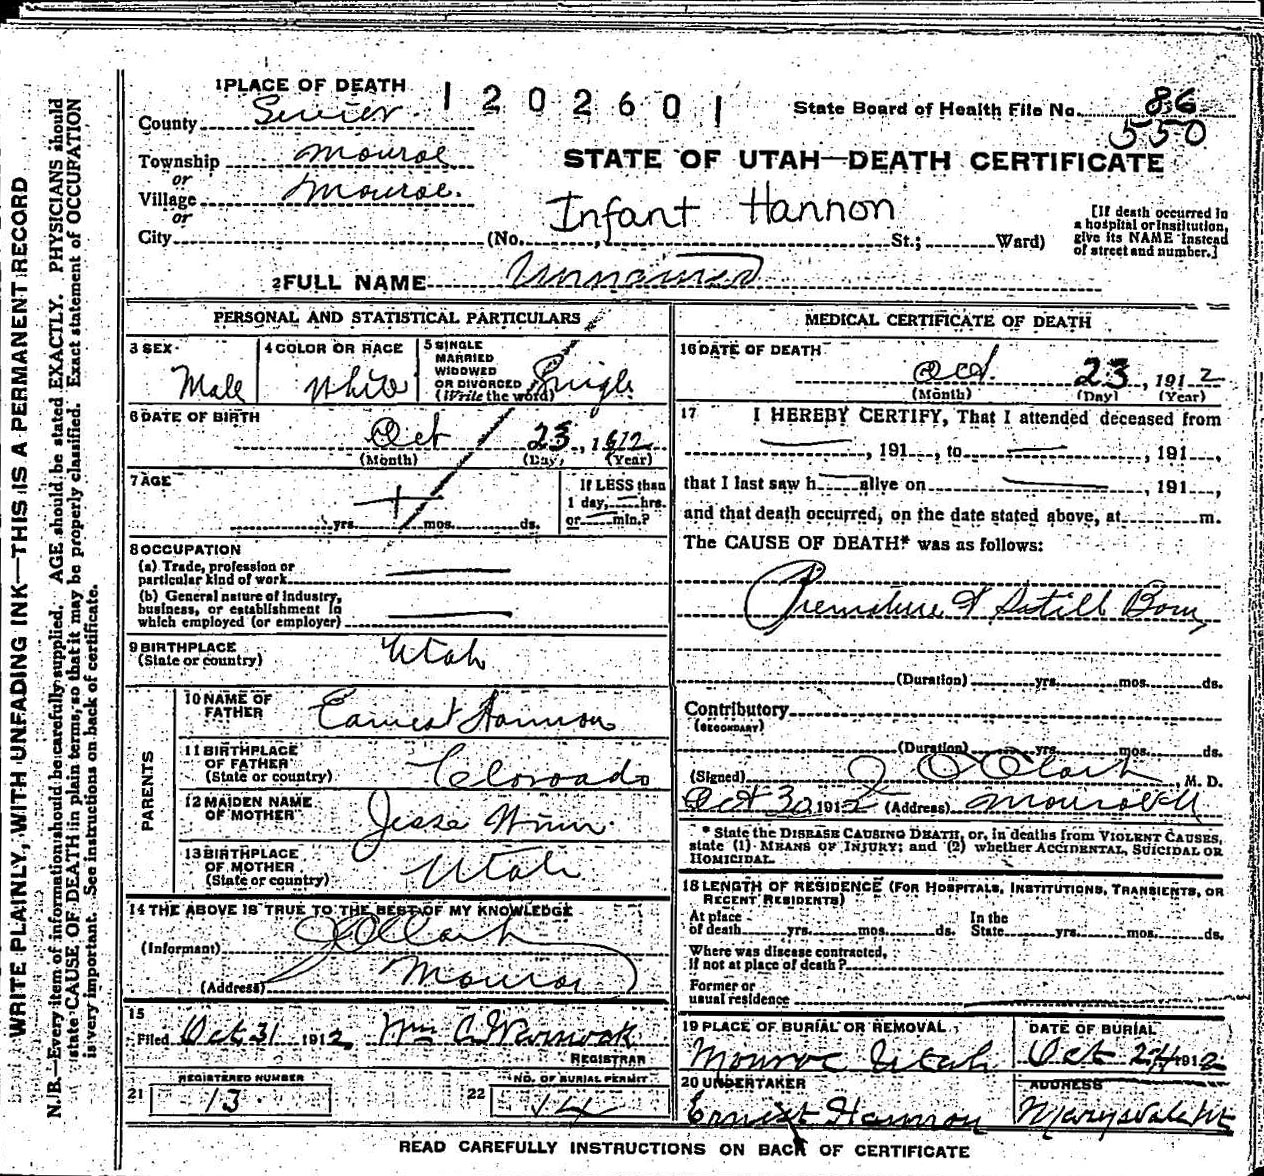 WRITE PLAINLY, WITH UNFADING INK—THIS IS A PERMANENT RECORD
N.B.—Every item of information should be carefully supplied. AGE should be stated EXACTLY. PHYSICIANS should
state CAUSE OF DEATH in plain terms, so that it may be properly classified. Exact statement of OCCUPATION
is very important. See instructions on back of certificate.
1 PLACE OF DEATH
1202601
State Board of Health File No. 86
550
County Sevier
Township Monroe
or
Village Monroe.
or
City
STATE OF UTAH—DEATH CERTIFICATE
Infant Hannon
(No. , St.; Ward)
[If death occurred in
a hospital or institution,
give its NAME instead
of street and number.]
2 FULL NAME Unnamed
PERSONAL AND STATISTICAL PARTICULARS
3 SEX Male
4 COLOR OR RACE White
5 SINGLE
MARRIED
WIDOWED
OR DIVORCED
(Write the word) Single
6 DATE OF BIRTH
Oct 23, 1912
(Month) (Day) (Year)
7 AGE
yrs. mos. ds.
If LESS than
1 day, hrs.
or min.?
8 OCCUPATION
(a) Trade, profession or
particular kind of work
(b) General nature of industry,
business, or establishment in
which employed (or employer)
9 BIRTHPLACE
(State or country) Utah
PARENTS
10 NAME OF
FATHER Earnest Hannon
11 BIRTHPLACE
OF FATHER
(State or country) Colorado
12 MAIDEN NAME
OF MOTHER Jesse Winn
13 BIRTHPLACE
OF MOTHER
(State or country) Utah
14 THE ABOVE IS TRUE TO THE BEST OF MY KNOWLEDGE
(Informant) Clark
(Address) Monroe
15
Filed Oct 31 1912 Wm C Warnock
REGISTRAR
21 REGISTERED NUMBER 13
22 NO. OF BURIAL PERMIT 14
MEDICAL CERTIFICATE OF DEATH
16 DATE OF DEATH
Oct. 23, 1912
(Month) (Day) (Year)
17 I HEREBY CERTIFY, That I attended deceased from
, 191 , to , 191 ,
that I last saw h alive on , 191 ,
and that death occurred, on the date stated above, at m.
The CAUSE OF DEATH* was as follows:
Premature & Still Born
(Duration) yrs. mos. ds.
Contributory
(SECONDARY)
(Duration) yrs. mos. ds.
(Signed) J O Clark, M. D.
Oct 30 1912 (Address) Monroe Ut
* State the DISEASE CAUSING DEATH, or, in deaths from VIOLENT CAUSES,
state (1) MEANS OF INJURY; and (2) whether ACCIDENTAL, SUICIDAL OR
HOMICIDAL.
18 LENGTH OF RESIDENCE (FOR HOSPITALS, INSTITUTIONS, TRANSIENTS, OR
RECENT RESIDENTS)
At place
of death yrs. mos. ds.
In the
State yrs. mos. ds.
Where was disease contracted,
if not at place of death?
Former or
usual residence
19 PLACE OF BURIAL OR REMOVAL
Monroe Utah
DATE OF BURIAL
Oct 24 1912
20 UNDERTAKER
Ernest Hannon
ADDRESS
Marysvale Ut
READ CAREFULLY INSTRUCTIONS ON BACK OF CERTIFICATE